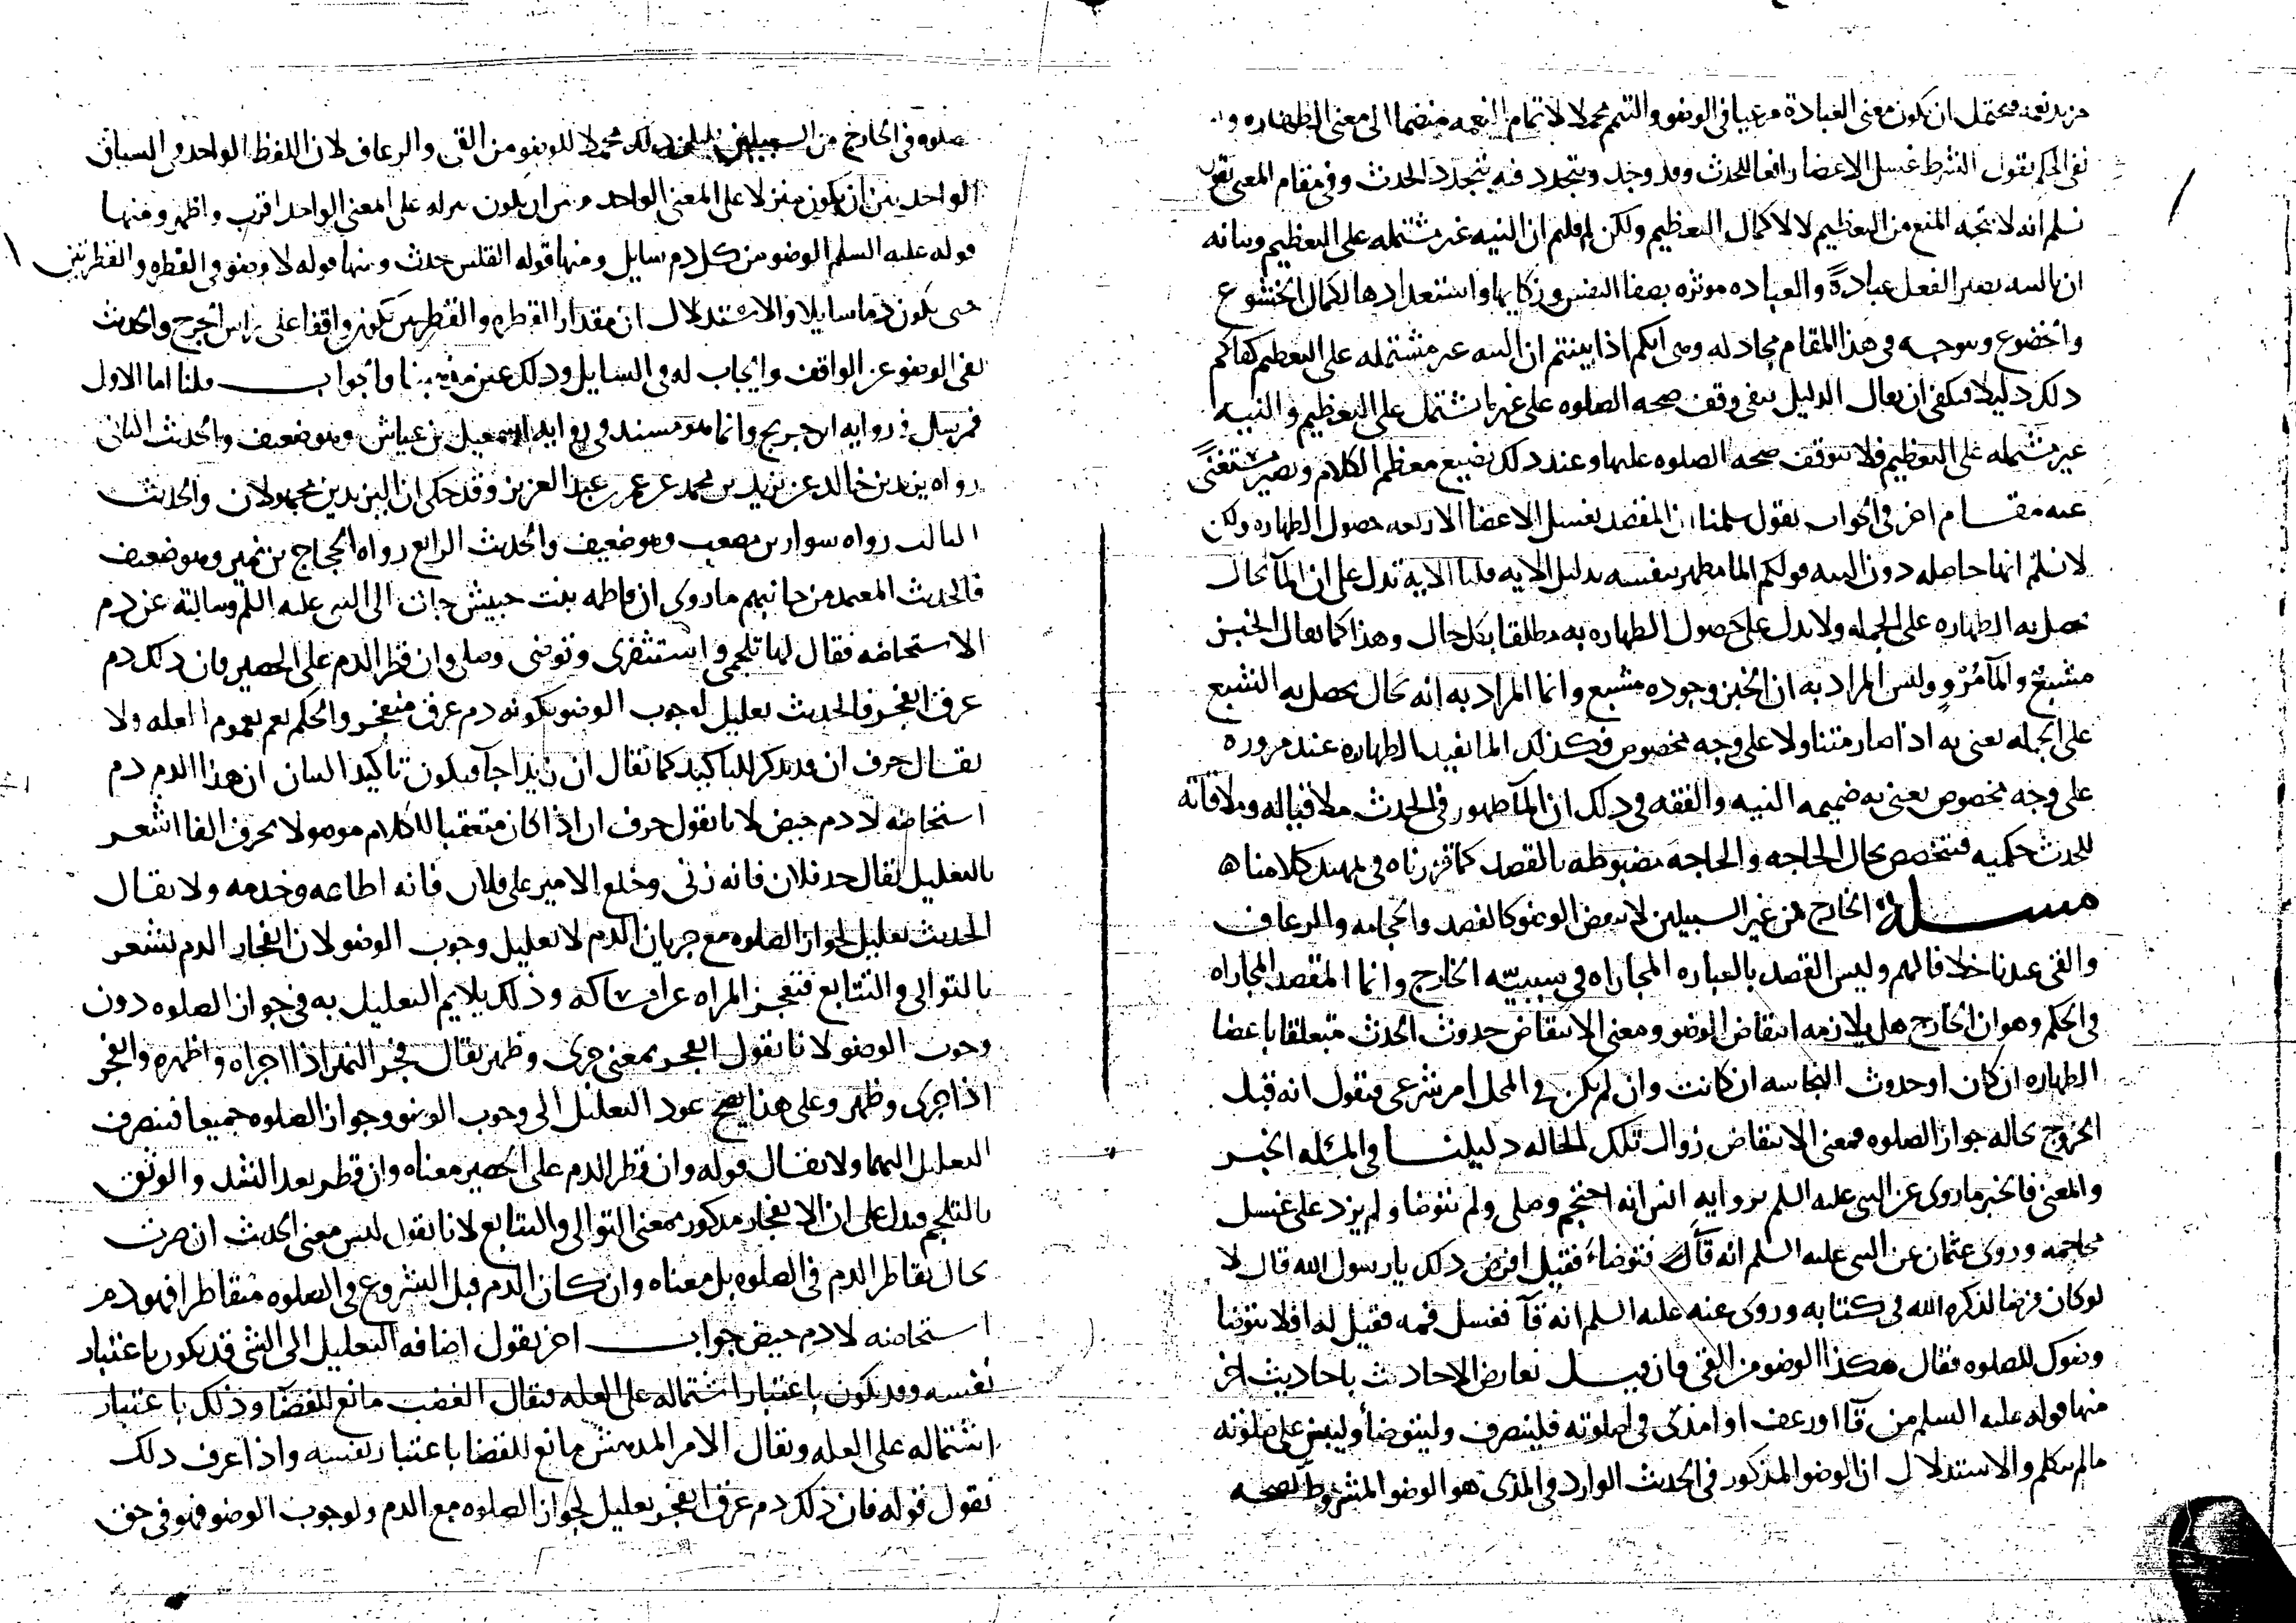 مزيد نعمة فيحتمل ان يكون معنى العبادة مرعيا في الوضو والتيمم محملا لاتمام النعمه منضما الى معنى الطهاره
نفي الحكم نقول الشرط غسل الاعضا رافعا للحدث وقد وجد ويتجدد فيه بتجدد الحدث وفي مقام المعنى نقول
نسلم انه لا يتجه المنع من التعظيم لا لاكمال التعظيم ولكن لم قلتم ان النيه غير مشتمله على التعظيم وبيانه
ان بالنيه يصير الفعل عبادةً والعباده موثره بصفا النفس وزكايها واستعدادها لكمال الخشوع
والخضوع ويتوجه في هذا المقام مجادله وهي انكم اذا بينتم ان النيه غير مشتمله على التعظيم كفاكم
ذلك دليلا فيكفي ان يقال الدليل ينفي وقف صحه الصلوه على غير ما اشتمل على التعظيم والنيه
غير مشتمله على التعظيم فلا تتوقف صحه الصلوه عليها وعند ذلك يضيع معظم الكلام ويصير مستغنىً
عنه مقام اخر في الجواب نقول سلمنا ان المقصد بغسل الاعضا الاربعه حصول الطهاره ولكن
لا نسلم انها حاصله دون النيه قولكم الما مطهر بنفسه بدليل الايه قلنا الايه تدل على ان المآ بحال
تحصل به الطهاره على الجمله ولا يدل على حصول الطهاره به مطلقا بكل حال وهذا كما يقال الخبز
مشبعٌ والمآ مُرْوٍ وليس المراد به ان الخبز وجوده مشبع وانما المراد به انه بحال يحصل به الشبع
على الجمله يعني به اذا صار متناولا على وجه مخصوص فكذلك الما يفيد الطهاره عند مروره
على وجه مخصوص يعني به ضميمه النيه والفقه في ذلك ان المآ طهور في الحدث ملاقياله وملاقاته
للحدث حكميه فتختص بحال الحاجه والحاجه مضبوطه بالقصد كما قررناه في تمهيد كلامنا ه
مسله الخارج من غير السبيلين لا ينقض الوضو كالفصد والحجامه والرعاف
والقي عندنا خلافا لهم وليس القصد بالعباره المجاراه في سببيّه الخارج وانما المقصد المجاراه
في الحكم وهو ان الخارج هل يلازمه انتقاض الوضو ومعنى الانتقاض حدوث الحدث متعلقا باعضا
الطهاره ان كان او حدوث النجاسه ان كانت وان لم يكن في المحل امر شرعي فنقول انه قبل
الخروج بحاله جواز الصلوه فمعنى الانتقاض زوال تلك الحاله دليلنا في المسله الخبر
والمعنى فالخبر ما روى عن النبي عليه السلم بروايه انس انه احتجم وصلى ولم يتوضا ولم يزد على غسل
محاجمه وروى عثمان عن النبي عليه السلم انه قآ فتوضاء فقيل افرض ذلك يا رسول الله قال لا
لو كان فرضا لذكره الله في كتابه وروى عنه عليه السلم انه قآ فغسل فمه فقيل له افلا تتوضا
وضوك للصلوه فقال هكذا الوضو من القي فان قيل تعارض الاحاديث باحاديث اخر
منها قوله عليه السلم من قآ او رعف او امذى في صلوته فلينصرف وليتوضأ وليبن على صلوته
مالم يتكلم والاستدلال ان الوضو المذكور في الحدث الوارد في المذى هو الوضو المشروط لصحه
صلوه في الخارج من السبيلين فليكن ذلك محملا للوضو من القي والرعاف لان اللفظ الواحد في السياق
الواحد بين ان يكون منزلا على المعنى الواحد وبين ان يكون على المعنى الواحد اقرب واظهر ومنها
قوله عليه السلم الوضو من كل دم سايل ومنها قوله القلس حدث ومنها قوله لا وضو في القطره والقطرتين
حتى يكون دما سايلا والاستدلال ان مقدار القطره والقطرتين تكون واقفا على راس الجرح والحدث
نفى الوضو عن الواقف وايجاب له في السايل وذلك عين والجواب قلنا اما الاول
فمرسل في روايه ابن جريج وانما هو مسند في روايه اسمعيل بن عياش وهو ضعيف والحدث الثاني
رواه يزيد بن خالد عن يزيد بن محمد عن عمر بن عبد العزيز وقد حكى ان اليزيدين مجهولان والحديث
الثالث رواه سوار بن مصعب وهو ضعيف والحدث الرابع رواه الحجاج بن نمير وهو ضعيف
فالحدث المعتمد من جانبهم ما روى ان فاطمه بنت حبيش جات الى النبي عليه السلم وسالته عن دم
الاستحاضه فقال لها تلجمى واستثفرى وتوضى وصلى وان قطر الدم على الحصير فان ذلك دم
عرق انفجر فالحديث تعليل لوجوب الوضو بكونه دم عرق منفجر والحكم يعم بعموم العله ولا
يقال حرف ان قد يذكر للتاكيد كما يقال ان زيدا جآ فيكون تاكيد البيان ان هذا الدم دم
استحاضه لا دم حيض لانا نقول حرف ان اذا كان متعقبا للكلام موصولا بحرف الفا اشعر
بالتعليل يقال حد فلان فانه زنى وخلع الامير على فلان فانه اطاعه وخدمه ولا يقال
الحديث تعليل لجواز الصلوه مع جريان الدم لا تعليل وجوب الوضو لان انفجار الدم يشعر
بالتوالي والتتابع فتعجز المراه عن امساكه وذلك يلايم التعليل به في جواز الصلوه دون
وجوب الوضو لانا نقول انفجر بمعنى جرى وظهر يقال فجر النهر اذا اجراه واظهره وانفجر
اذا جرى وظهر وعلى هذا يصح عود التعليل الى وجوب الوضو وجواز الصلوه جميعا فينصرف
التعليل اليهما ولا يقال قوله وان قطر الدم على الحصير معناه وان قطر بعد الشد والوثق
بالتلجم فيدل على ان الانفجار مذكور بمعنى التوالي والتتابع لانا نقول ليس معنى الحديث ان صرت
بحال تقاطر الدم في الصلوه بل معناه وان كان الدم قبل الشروع في الصلوه متقاطرا فهو دم
استحاضه لا دم حيض جواب اخر نقول اضافه التعليل الى الشى قد يكون باعتبار
نفسه وقد يكون باعتبار اشتماله على العله فيقال الغضب مانع للقضآ وذلك باعتبار
اشتماله على العله ويقال الامر المدهش مانع للقضا باعتبار نفسه واذا عرف ذلك
نقول قوله فان ذلك دم عرق انفجر تعليل لجواز الصلوه مع الدم ولوجوب الوضو فهو في حق